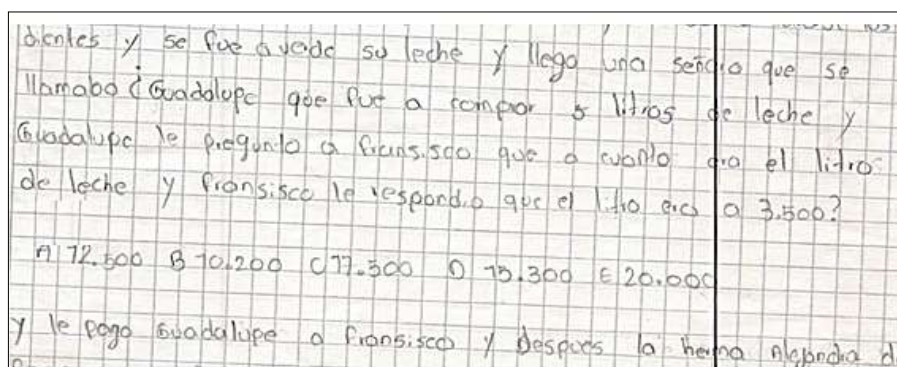 dientes y se fue a vede su leche y llego una señora que se
llamabo ¿Guadalupe que fue a comprar 5 litros de leche y
Guadalupe le pregunto a fransisco que a cuanto era el litro
de leche y fransisco le respondio que el litro era a 3.500?
A 12.500 B 10.200 C 17.500 D 15.300 E 20.000
y le pago Guadalupe a fransisco y Despues la